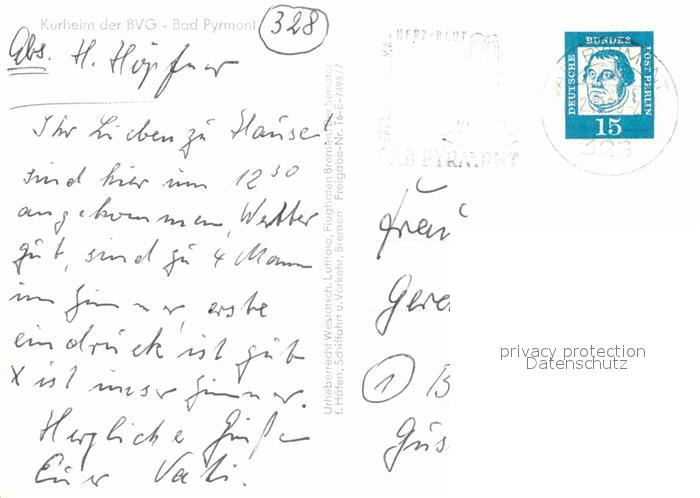 Kurheim der BVG - Bad Pyrmont
328
Abs. H. Höpfner
Ihr Lieben zu Hause!
sind hier um 12 30
angekommen, Wetter
gut, sind zu 4 Mann
im Zimmer, erste
eindrück ist gut
X ist unser Zimmer.
Herzliche Grüße
Euer Vati.
Urheberrecht Westdtsch. Luftfoto, Flughafen Bremen
Senator
f. Häfen, Schiffahrt u. Verkehr, Bremen Freigabe-Nr.
HERZ · BLUT
BAD PYRMONT
DEUTSCHE BUNDESPOST BERLIN
15
328
Frau
Gere
1 B
Gus
privacy protection
Datenschutz